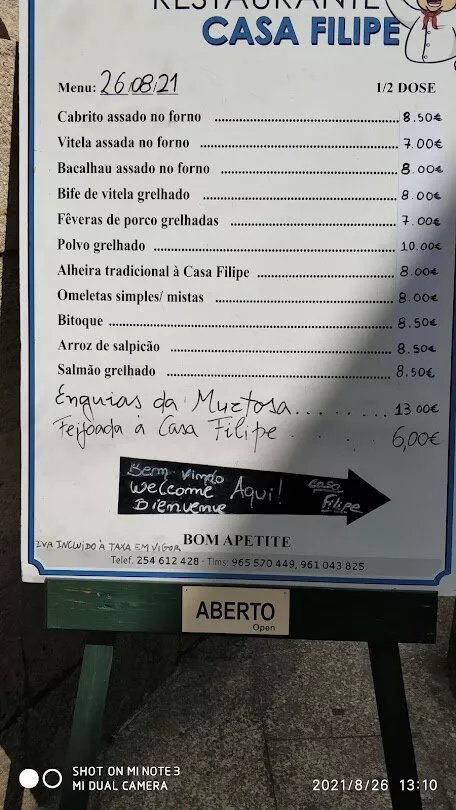 RESTAURANTE
CASA FILIPE
Menu: 26/08/21 1/2 DOSE
Cabrito assado no forno ........ 8.50€
Vitela assada no forno ........ 7.00€
Bacalhau assado no forno ........ 8.00€
Bife de vitela grelhado ........ 8.00€
Fêveras de porco grelhadas ........ 7.00€
Polvo grelhado ........ 10.00€
Alheira tradicional à Casa Filipe ........ 8.00€
Omeletas simples/ mistas ........ 8.00€
Bitoque ........ 8.50€
Arroz de salpicão ........ 8.50€
Salmão grelhado ........ 8.50€
Enguias da Murtosa........ 13.00€
Feijoada à Casa Filipe ........ 6,00€
Bem Vindo
Welcome Aqui! Casa
Bienvenue Filipe
BOM APETITE
IVA INCLUIDO À TAXA EM VIGOR
Telef. 254 612 428 · Tlms: 965 570 449, 961 043 825
ABERTO
Open
SHOT ON MI NOTE 3
MI DUAL CAMERA
2021/8/26 13:10